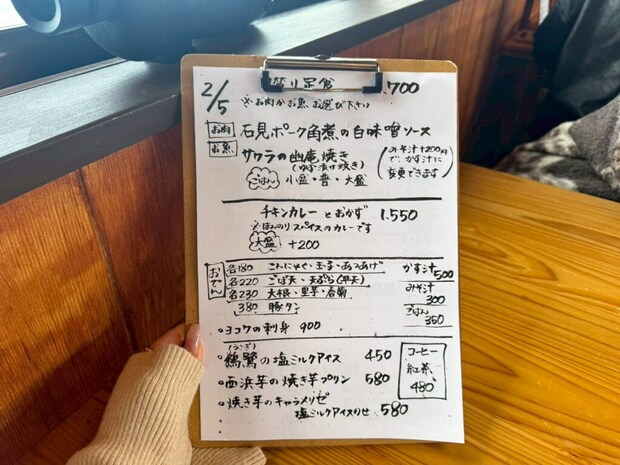 2/5
り定食 700
※お肉かお魚お選び下さい
お肉 石見ポーク角煮の白味噌ソース
お魚 サワラの幽庵焼き
(ゆず漬け焼き)
(みそ汁+200円で、かす汁に変更できます)
ごはん 小盛・普・大盛
チキンカレーとおかず 1.550
※ほんのりスパイスのカレーです
大盛 +200
おでん
各180 こんにゃく・玉子・あつあげ
各220 ごぼ天・天ぷら(平天)
各230 大根・里芋・
380 豚タン
かす汁 500
みそ汁 300
ごはん 350
・ヨコワの刺身 900
・鵜鷺の塩ミルクアイス 450
(うさぎ)
・西浜芋の焼き芋プリン 580
・焼き芋のキャラメリゼ
塩ミルクアイスのせ 580
コーヒー
紅茶
480